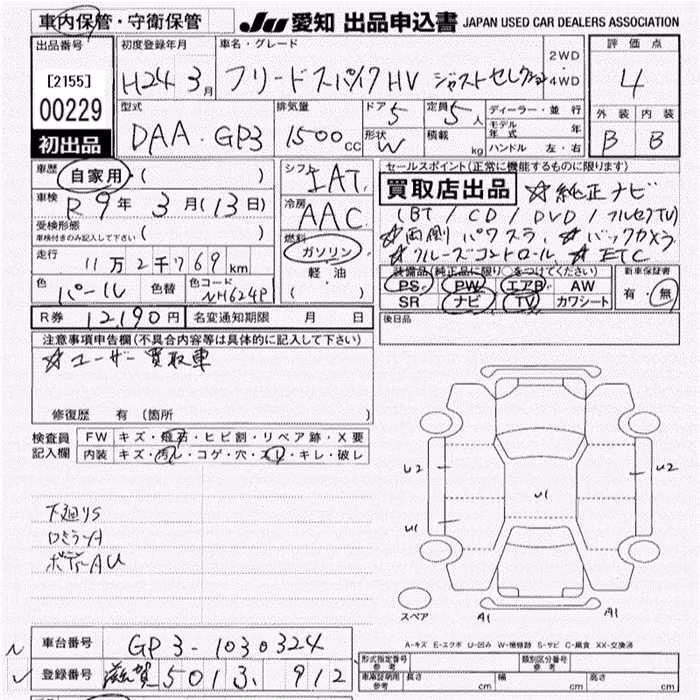 車内保管・守衛保管
JU 愛知 出品申込書 JAPAN USED CAR DEALERS ASSOCIATION
出品番号
[2155]
00229
初出品
初度登録年月
H24 3月
車名・グレード
フリードスパイクHV ジャストセレクション
2WD
4WD
評価点
4
型式
DAA・GP3
排気量
1500cc
ドア 5
形状 W
定員 5人
積載 kg
ディーラー・並行
モデル年式 年
ハンドル 左・右
外装 内装
B B
車歴 自家用・( )
車検 R9年 3月(13日)
受検形態
車検付きのみ記入して下さい ( )
走行 11万2千769km
色 パール 色替 色コード NH624P
シフト IAT
冷房 AAC
燃料
ガソリン
軽油
( )
セールスポイント(正常に機能するものに限ります)
買取店出品 ☆純正ナビ
(BT/CD/DVD/フルセグTV)
☆両側パワスラ ☆バックカメラ
☆クルーズコントロール ☆ETC
装備品(純正品に限り○をつけてください)
PS PW エアB AW
SR ナビ TV カワシート
新車保証書
有・無
R券 12,190円 名変通知期限 月 日
後日品
注意事項申告欄(不具合内容等は具体的に記入して下さい)
☆ユーザー買取車
修復歴 有(箇所 )
検査員記入欄
FW キズ・飛石・ヒビ割・リペア跡・X要
内装 キズ・汚れ・コゲ・穴・スリ・キレ・破レ
下廻りS
ロミラーA
ボディAU
U2
U1
U1
U2
スペア
A1
A1
A-キズ E-エクボ U-凹み W-補修跡 S-サビ C-腐食 XX-交換済
車台番号 GP3-1030324
登録番号 滋賀 501 3 912
型式指定番号 参考
類別区分番号 参考
車庫証明用 参考 長さ cm 幅 cm 高さ cm